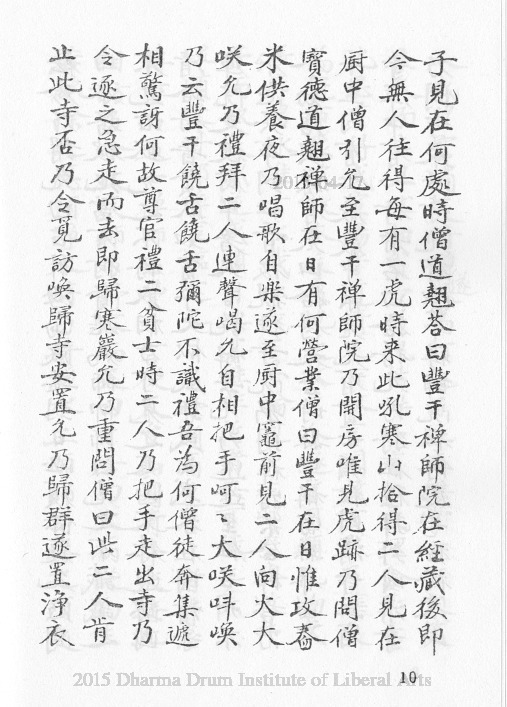 子見在何處時僧道翹荅曰豐干禪師院在經藏後即
今無人住得每有一虎時来此吼寒山拾得二人見在
厨中僧引允至豐干禅師院乃開房唯見虎跡乃問僧
寶德道翹禅師在日有何營業僧曰豐干在日惟攻舂
米供養夜乃唱歌自樂遂至厨中竈前見二人向火大
咲允乃禮拜二人連聲喝允自相把手呵〻大咲呌喚
乃云豐干饒舌饒舌彌陀不識禮吾為何僧徒奔集遞
相驚訝何故尊官禮二貧士時二人乃把手走出寺乃
令逐之急走而去即歸寒巖允乃重問僧曰此二人肯
止此寺否乃令覓訪喚歸寺安置允乃歸群遂置淨衣
10
2015 Dharma Drum Institute of Liberal Arts